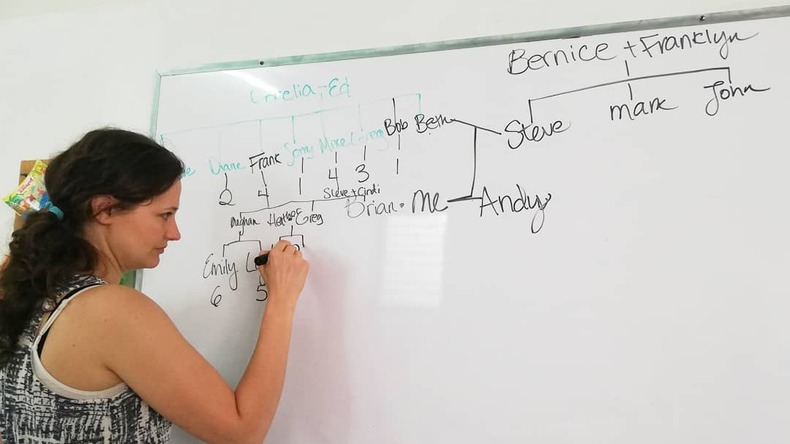 Bernice + Franklyn
Ed
Steve mark John
Diane Frank Jerry Mike Greg Bob Beth
2 4 1 4 3 1
Steve + Cindi
Meghan Greg Brian me Andy
Emily
6 5